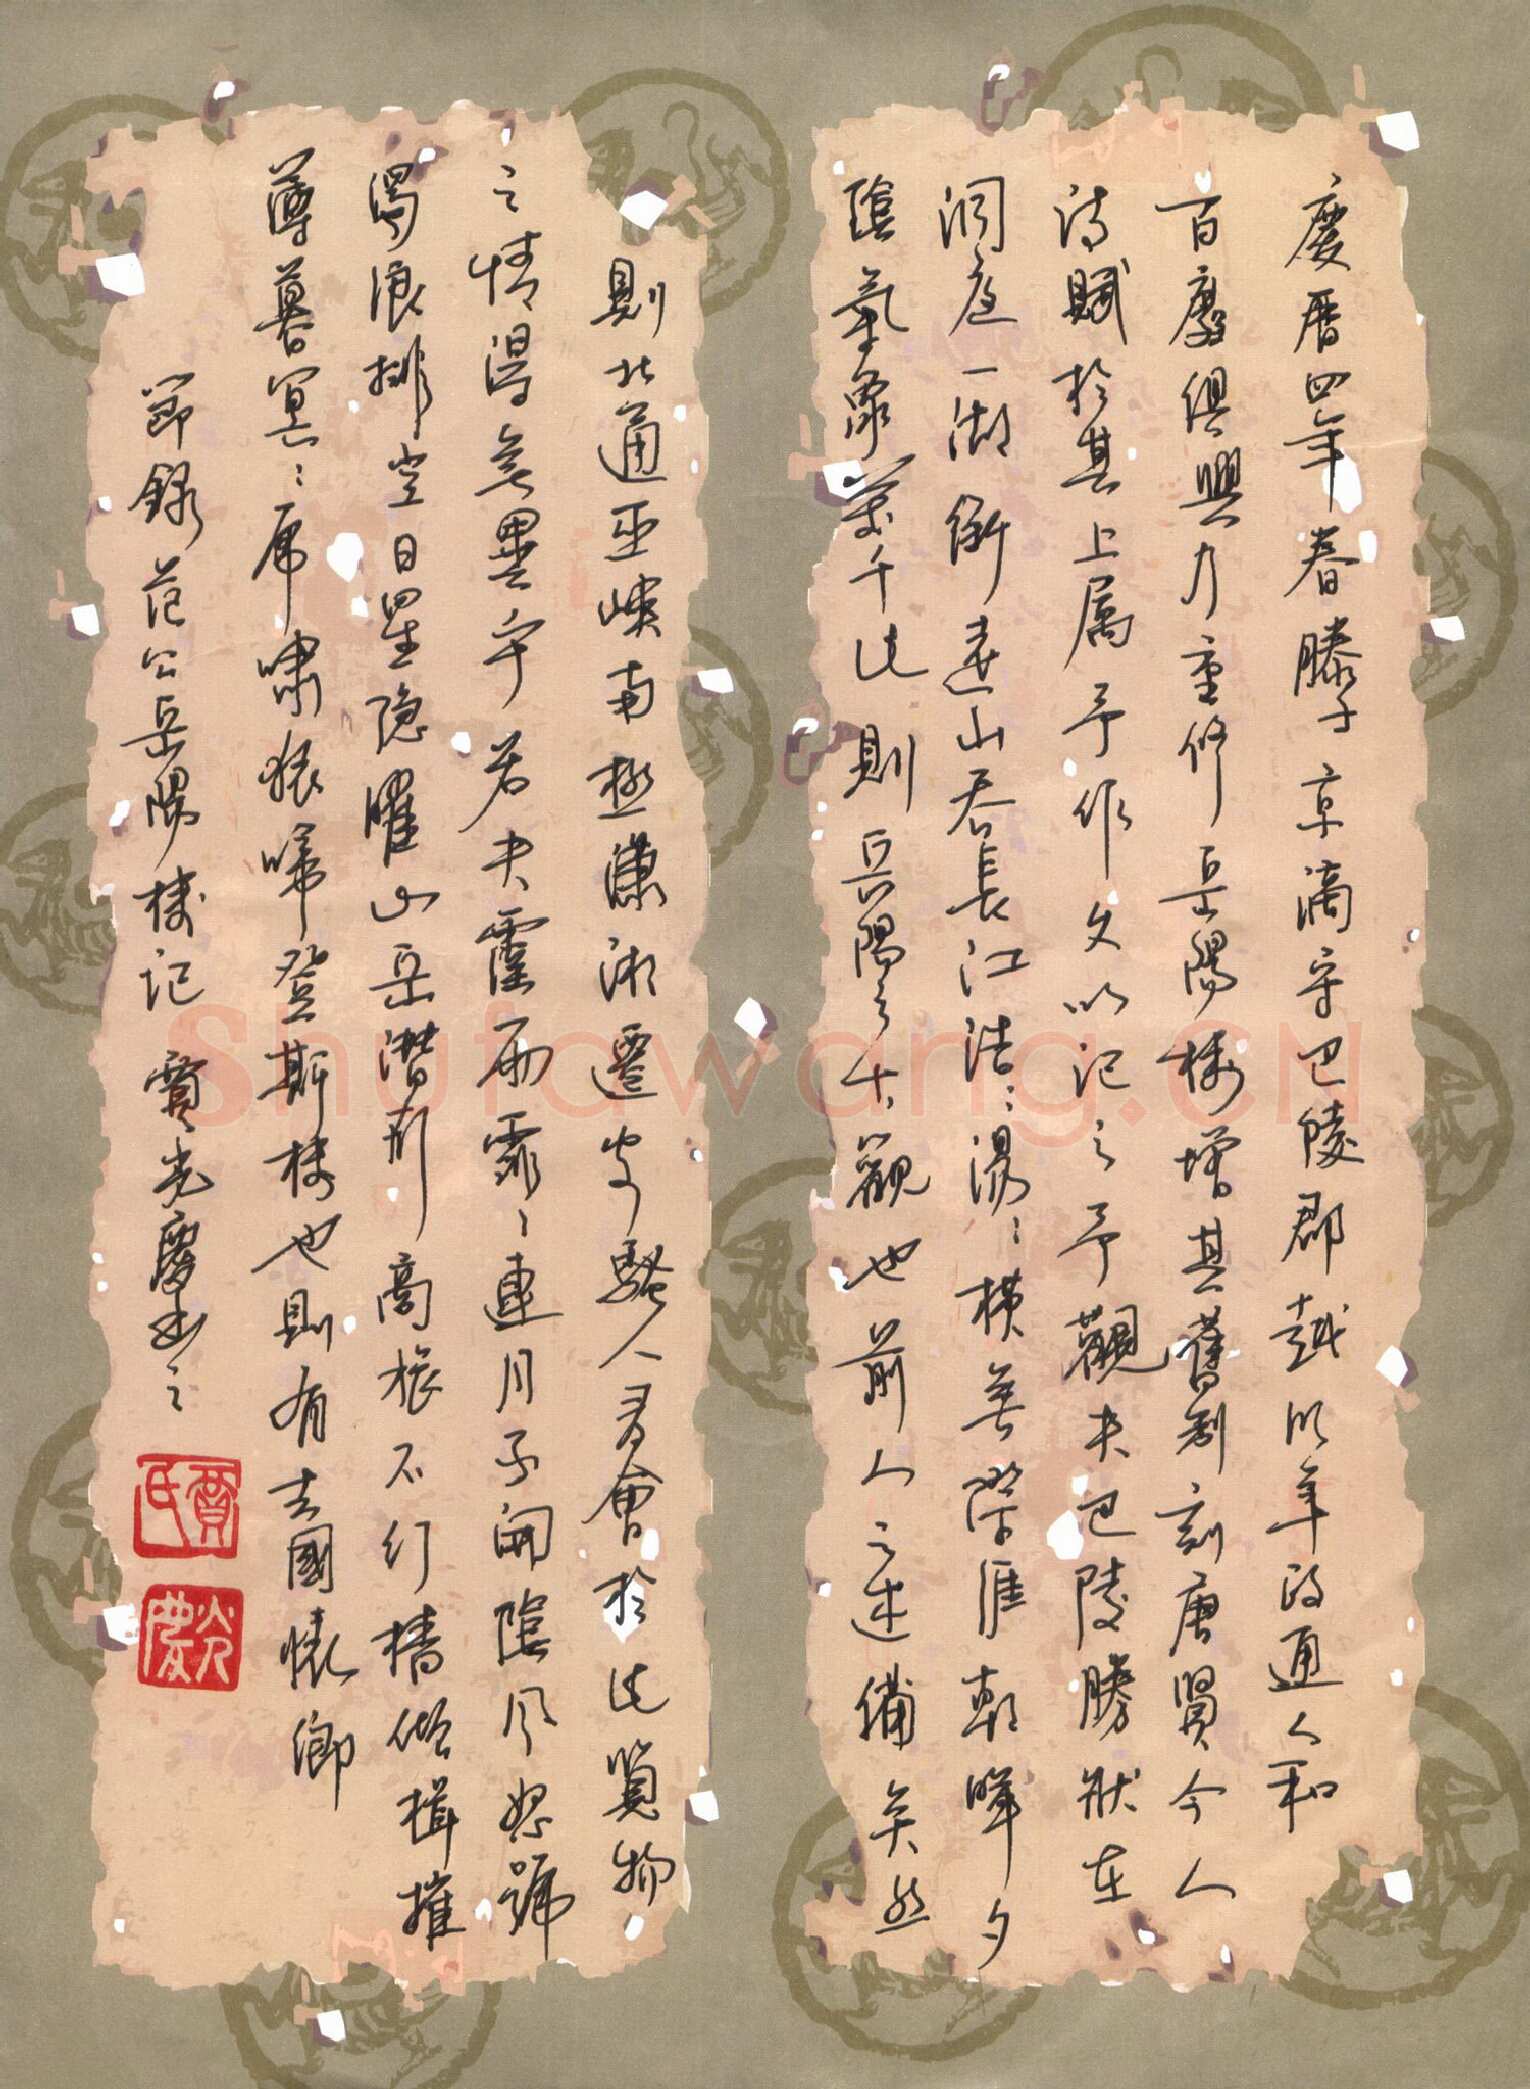 慶曆四年春滕子京謫守巴陵郡越明年政通人和
百廢俱興乃重修岳陽樓增其舊制刻唐賢今人
詩賦於其上属予作文以記之予觀夫巴陵勝狀在
洞庭一湖銜遠山吞長江浩々湯々橫無際涯朝暉夕
陰氣象萬千此則岳陽之大觀也前人之述備矣然
則北通巫峽南極瀟湘遷客騷人多會於此覽物
之情得無異乎若夫霪雨霏々連月不開陰風怒號
濁浪排空日星隱曜山岳潛形商旅不行檣傾楫摧
薄暮冥々虎嘯猿啼登斯樓也則有去國懷鄉
節錄范公岳陽樓記 賈光慶書之
賈氏
光慶
Shufawang.CN